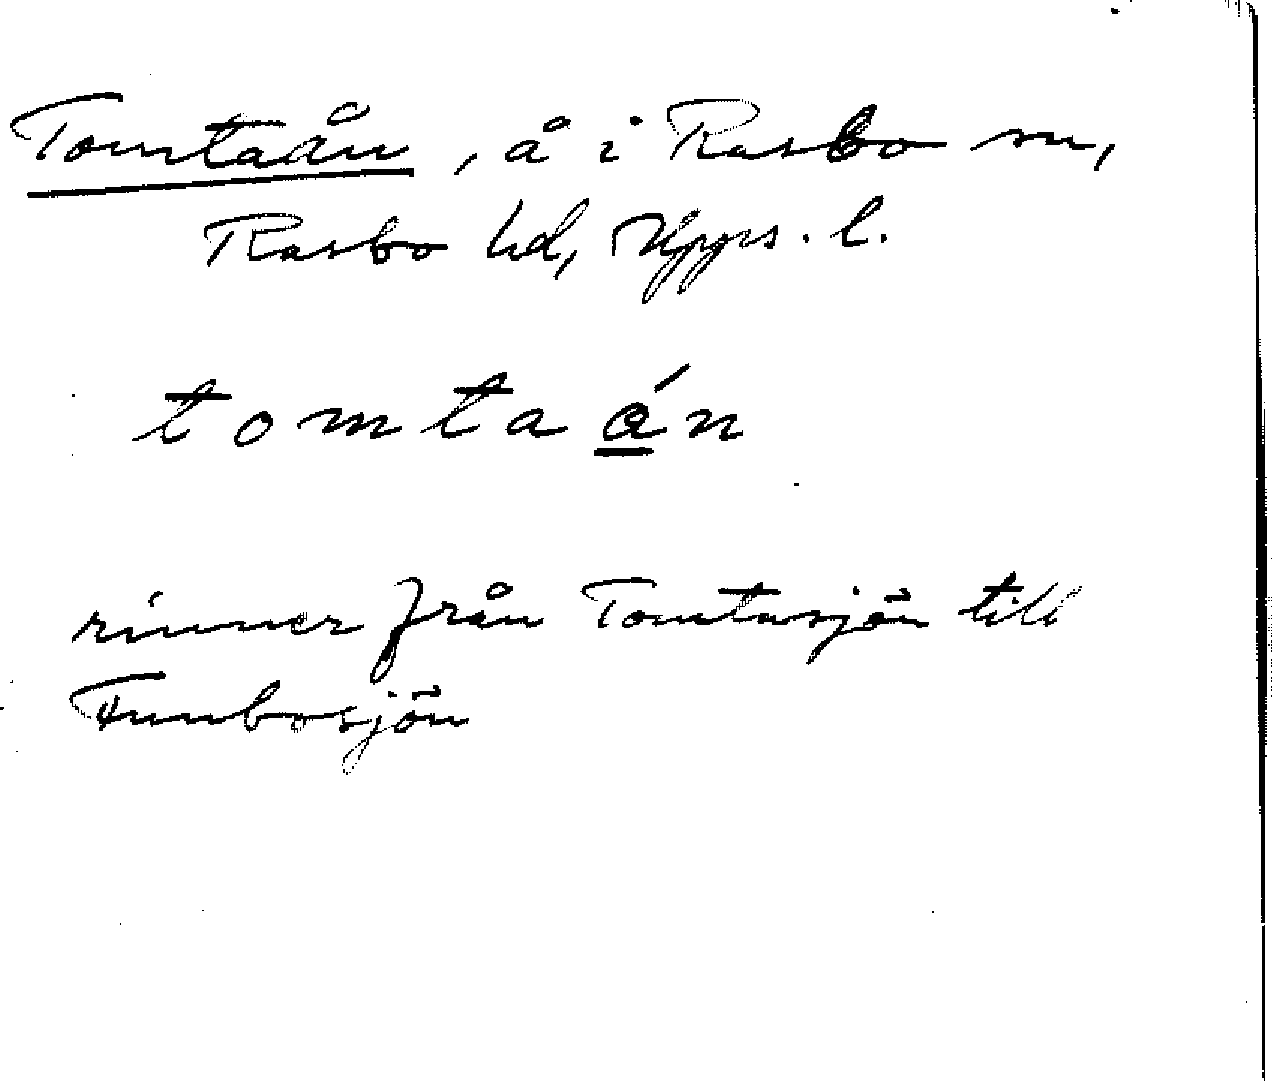 Tomtaån, å i Rasbo sn,
Rasbo hd, Upps. l.
tomtaán
rinner från Tomtasjön till
Funbosjön